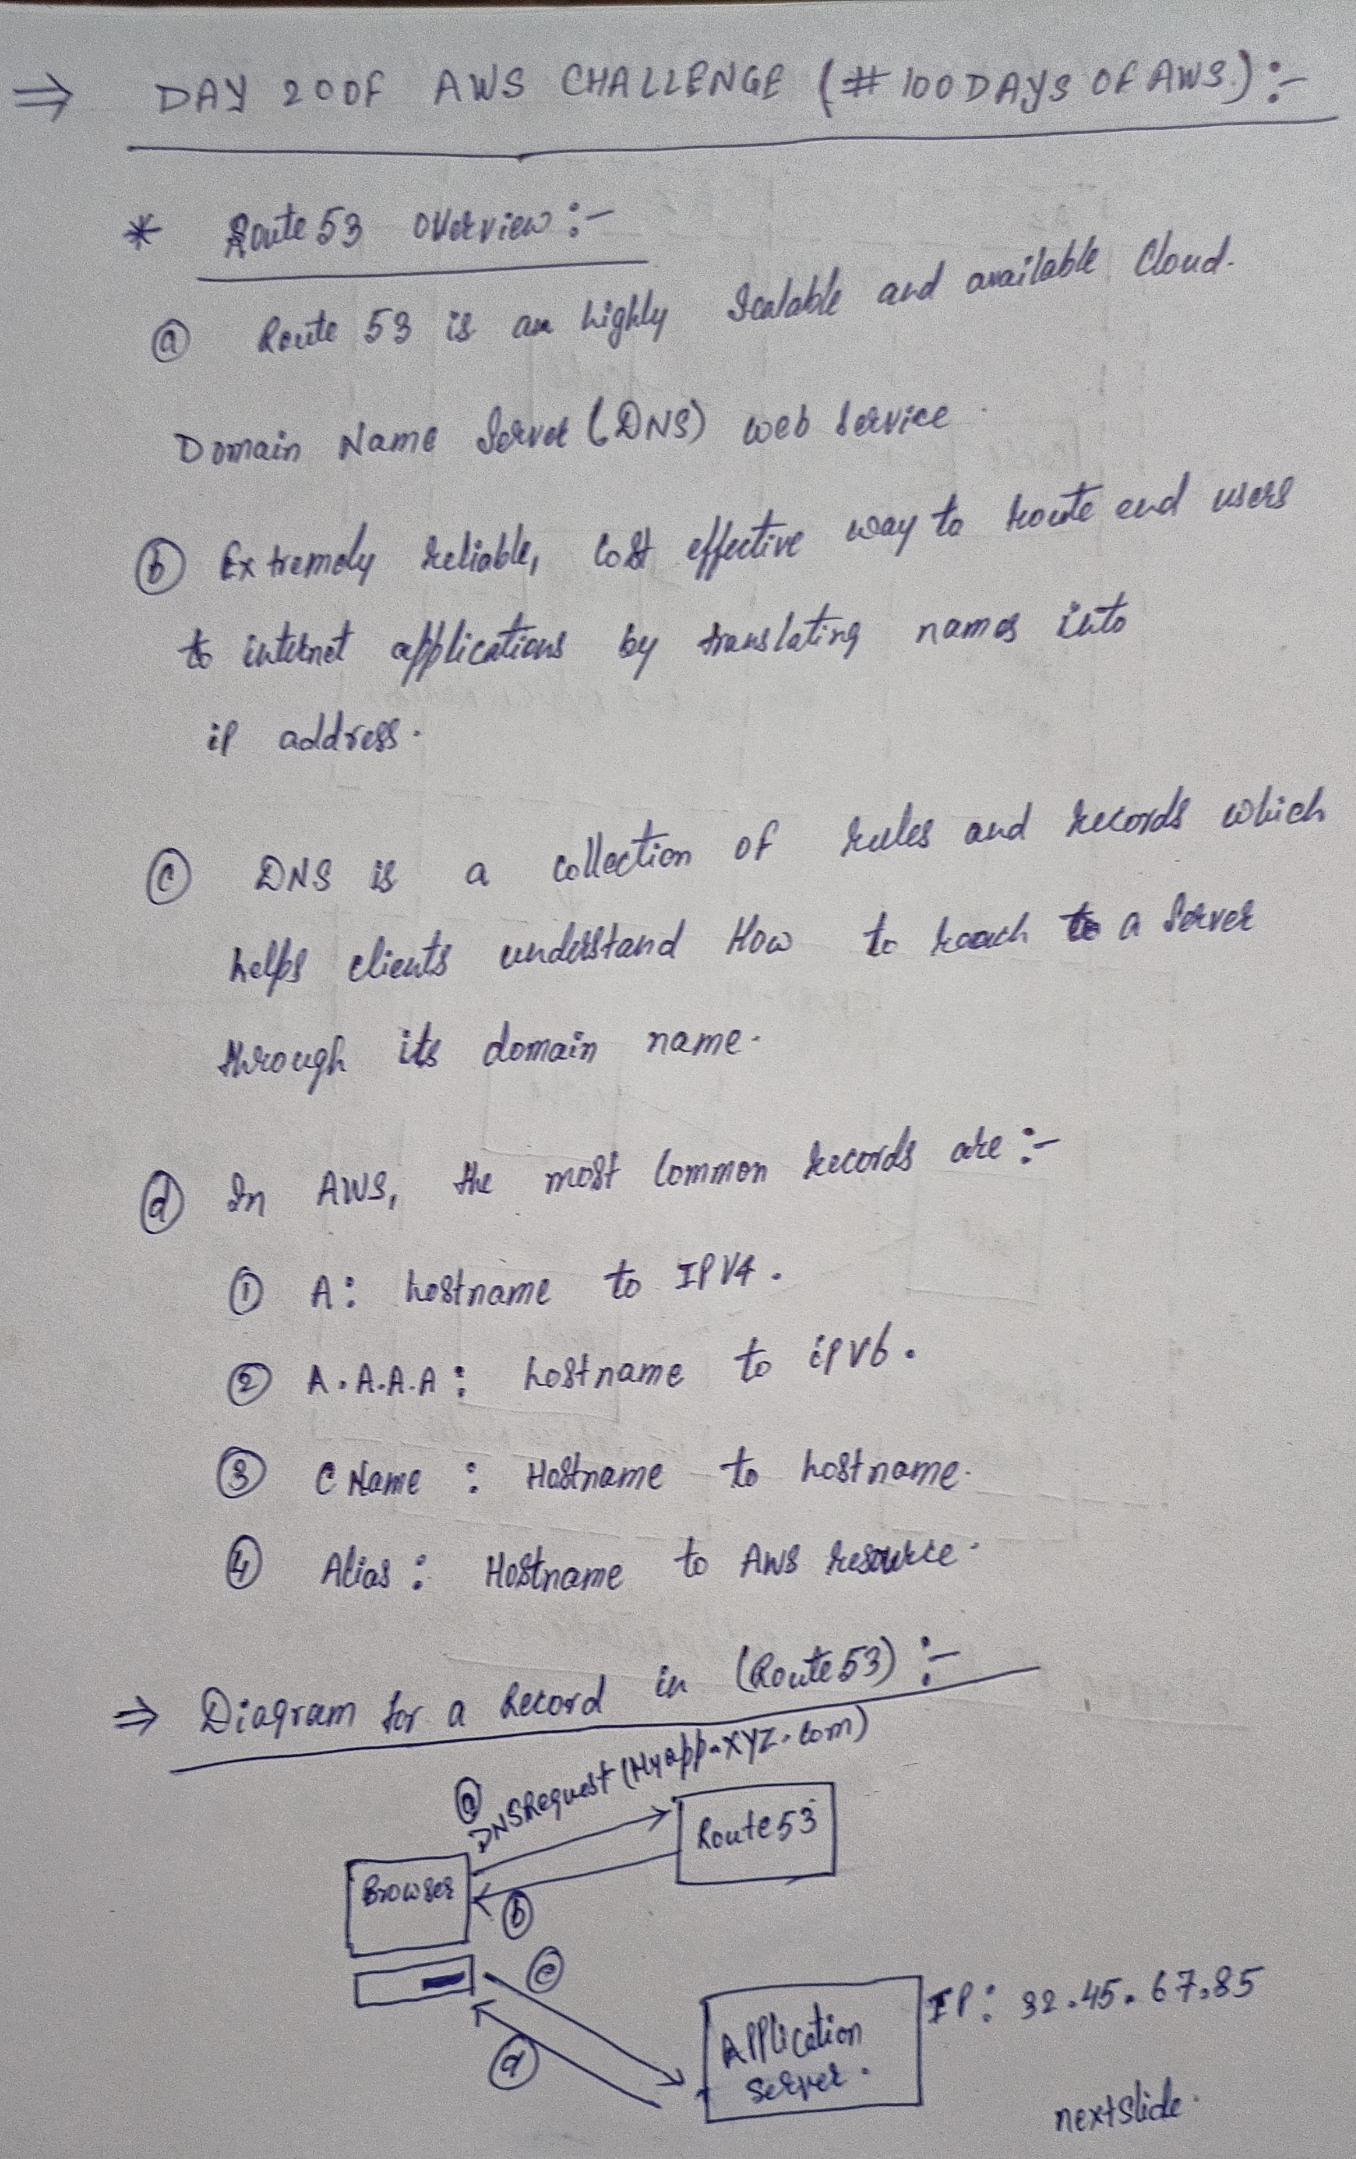 ⇒ DAY 20 OF AWS CHALLENGE (#100DAYS OF AWS.) :-
* Route 53 Overview :-
ⓐ Route 53 is an highly Scalable and available Cloud.
Domain Name Server (DNS) web service.
ⓑ Extremely reliable, Cost effective way to route end users
to internet applications by translating names into
ip address.
ⓒ DNS is a collection of rules and records which
helps clients understand How to reach to a Server
through its domain name.
ⓓ In AWS, the most Common records are :-
① A: hostname to IPV4.
② A.A.A.A: hostname to ipv6.
③ C Name : Hostname to hostname.
④ Alias : Hostname to AWS resource.
⇒ Diagram for a Record in (Route 53) :-
ⓐ DNS Request (Myapp.XYZ.com)
Route 53
Browser
ⓑ
ⓒ
IP: 32.45.67.85
Application
ⓓ
Server.
next slide.